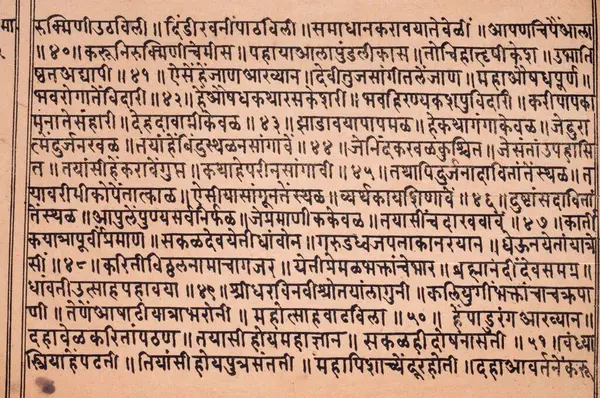 मा.
५
रुक्मिणी उठविली ॥ दिंडीरवनीं पाठविली ॥ समाधान करावया ते वेळीं ॥ आपण चि पैं आला
॥ ४० ॥ करूनि रुक्मिणी चें मीस ॥ पहाया आला पुंडलीकास ॥ तोचि हा हृषीकेश ॥ उभा ति
ष्ठत अद्यापी ॥ ४१ ॥ ऐसें हें जाण आख्यान ॥ देवी तुज सांगीतलें जाण ॥ महा औषध पूर्ण ॥
भवरोगातें विदारी ॥ ४२ ॥ हे औषध कथा रस केशरी ॥ भव हिरण्यकशपु विदारी ॥ करी पाप का
मूनातें संहारी ॥ देह दावाग्नी केवळ ॥ ४३ ॥ झाडावया पाप मळ ॥ हे कथा गंगा केवळ ॥ जे दुरा
त्मे दुर्जन खळ ॥ तयां हें बिंदुस्थळ न सांगावें ॥ ४४ ॥ जे निंदक खळ कुश्चित ॥ जे संतां उपहासि
त ॥ तयांसी हें करावें गुप्त ॥ कथा हे परी न सांगावी ॥ ४५ ॥ तयापि दुर्जना दावितां तें स्थळ ॥ त
यावरी मी कोपेन तात्काळ ॥ ऐसीया सांगून तें स्थळ ॥ व्यर्थ काय शिणावें ॥ ४६ ॥ दुष्टांस दावितां
तें स्थळ ॥ आपुलें पुण्य सर्व निर्फळ ॥ जे प्रमाणीक केवळ ॥ तयासीं च दाखवावें ॥ ४७ ॥ कार्ती
क यात्रा पूर्वी प्रमाण ॥ सकळ देव येती धांवोन ॥ गरुडध्वज पताका नरयान ॥ घेऊन येती यात्रे
सीं ॥ ४८ ॥ करिती विठ्ठल नामाचा गजर ॥ येती प्रेमळ भक्तांचे भार ॥ ब्रह्मानंदीं देव समग्र ॥
धावती उत्साह पहावया ॥ ४९ ॥ श्रीधर विनवी श्रोतयां लागुनी ॥ कलियुगीं भक्तांचा च ऋ पा
णी ॥ तेणें आषाढी यात्रा भरोनी ॥ महोत्साह वाढविला ॥ ५० ॥ हें पांडुरंग आख्यान ॥
दहा वेळ करितां पठण ॥ तयासी होय महाज्ञान ॥ सकळ ही दोष नासती ॥ ५१ ॥ वंध्या
स्त्रिया हें पढती ॥ तियांसी होय पुत्र संतती ॥ महा पिशाच्यें दूर होती ॥ दहा आवर्तनें करू